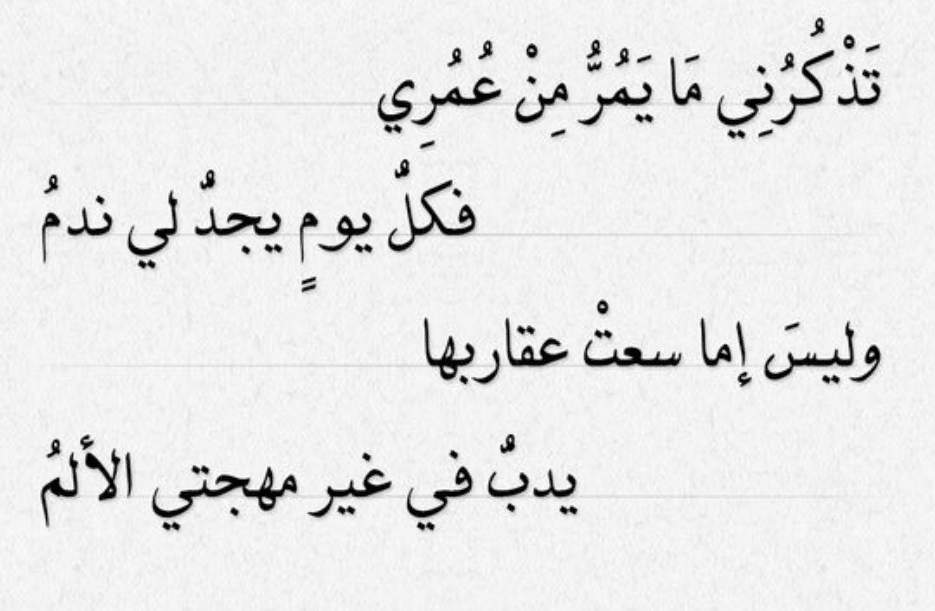 تَذْكُرُنِي مَا يَمُرُّ مِنْ عُمُرِي
فكلُّ يومٍ يجدُّ لي ندمُ
وليسَ إما سعتْ عقاربها
يدبُّ في غير مهجتي الألمُ